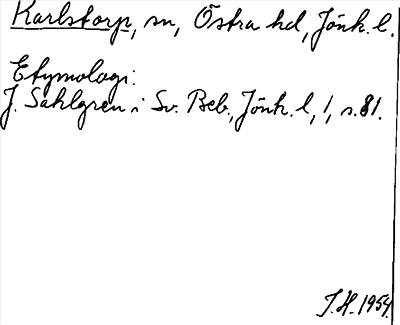 Karlstorp, sn, Östra hd, Jönk. l.
Etymologi:
J. Sahlgren i Sv. Beb., Jönk. l, 1, s. 81.
J.H. 1954.